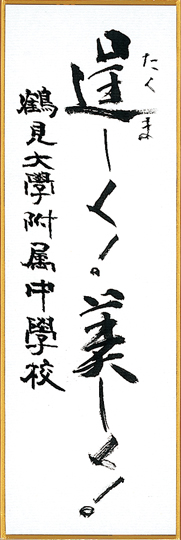 逞しく!。美しく!。
たくま
鶴見大學附属中學校